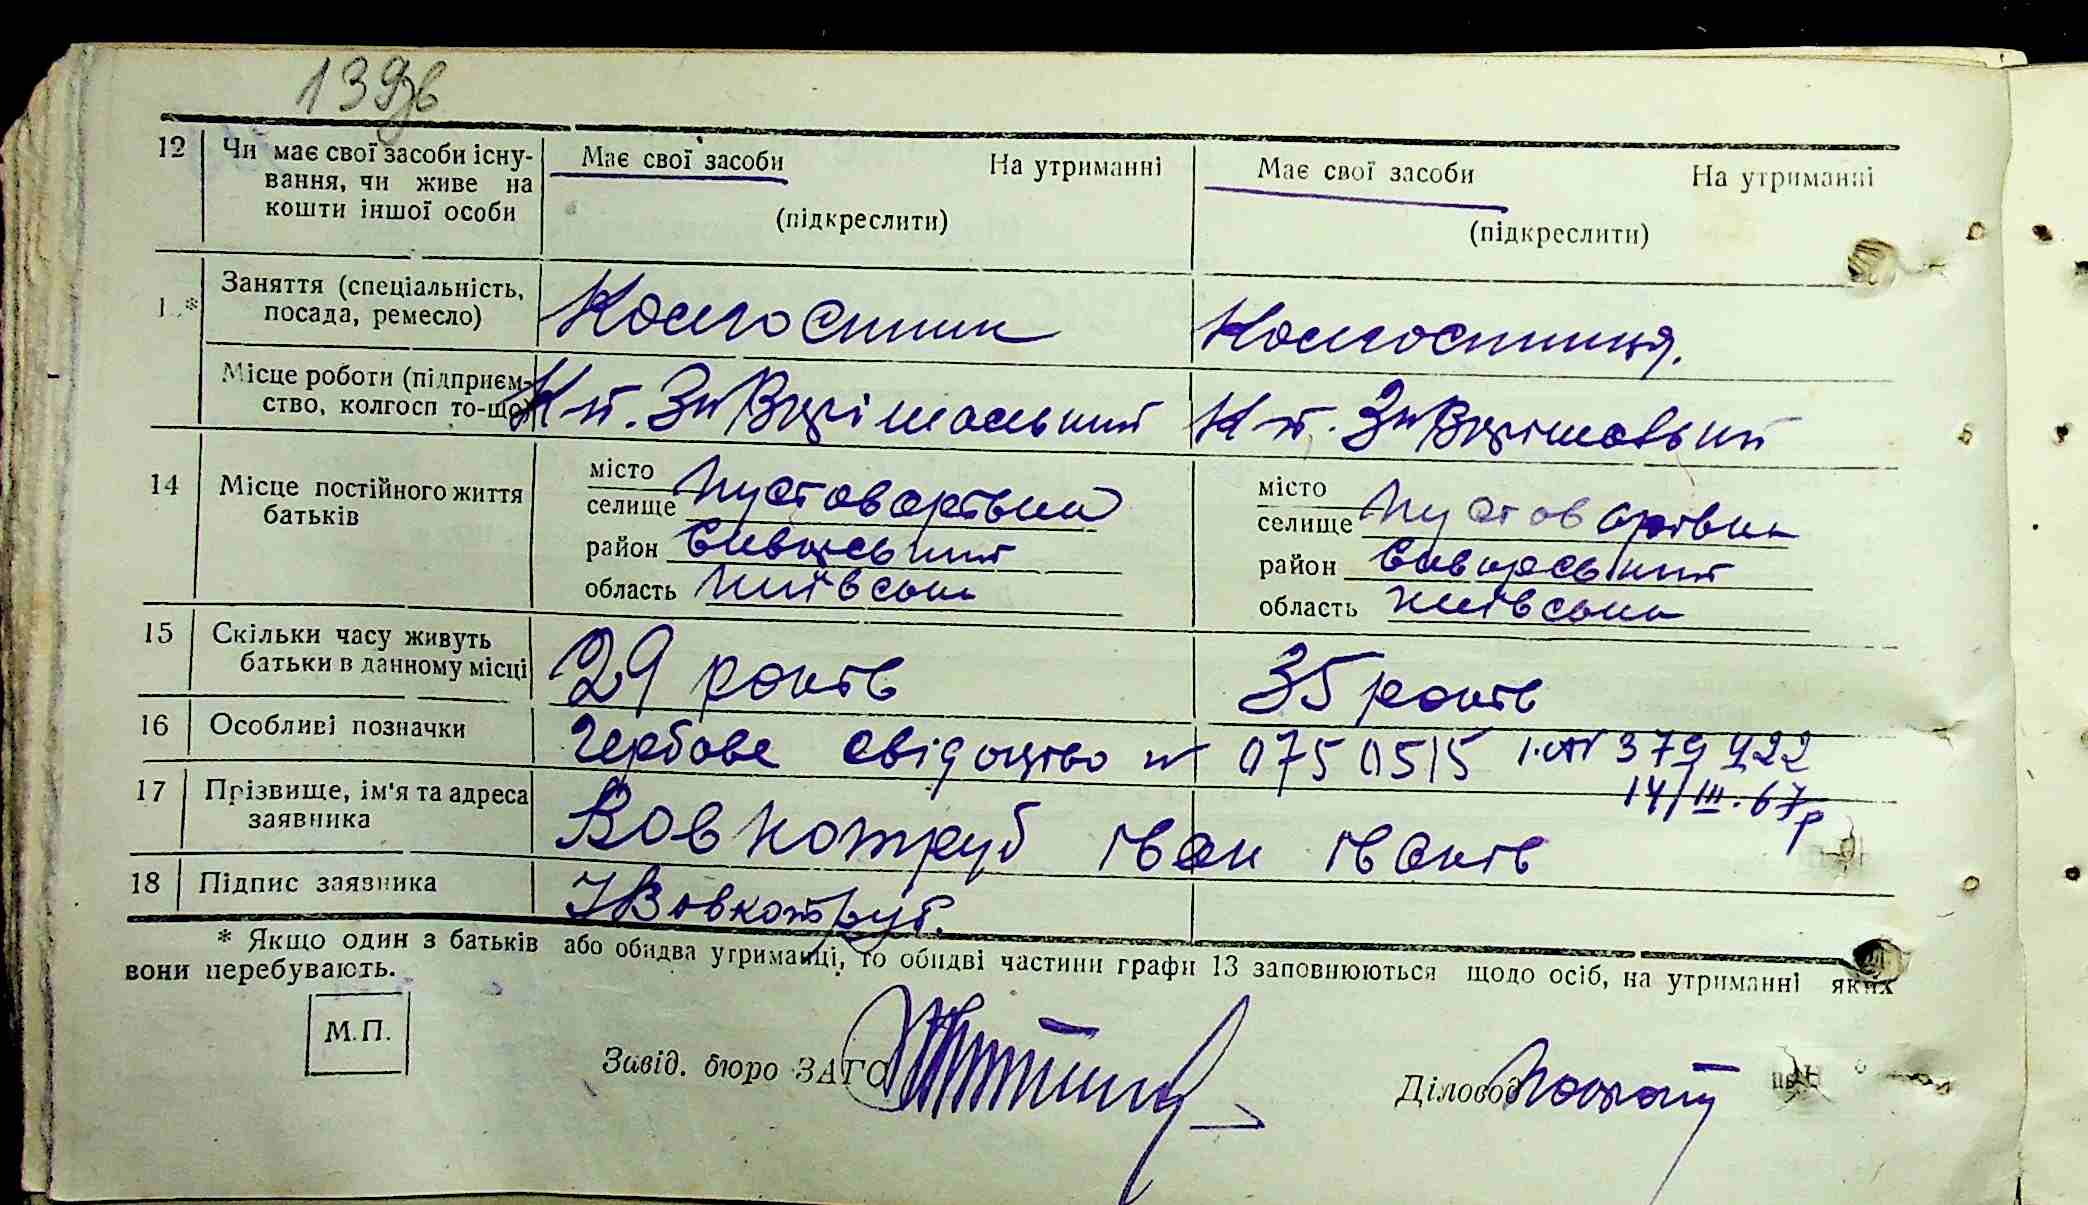 139зв
12 Чи має свої засоби існу- Має свої засоби На утриманні Має свої засоби На утриманні
вання, чи живе на
кошти іншої особи (підкреслити) (підкреслити)
1 * Заняття (спеціальність, Колгоспник Колгоспниця.
посада, ремесло)
Місце роботи (підприєм-
ство, колгосп то-що)
14 Місце постійного життя місто місто
батьків селище селище
район район
область Київська область Київська
15 Скільки часу живуть 29 років 35 років
батьки в данному місці
16 Особливі позначки Гербове свідоцтво № 0750515 379422
14/III.67р
17 Прізвище, ім'я та адреса Вовкотруб Іван Іванів
заявника
18 Підпис заявника ІВовкотруб.
* Якщо один з батьків або обидва утриманці, то обидві частини графи 13 заповнюються щодо осіб, на утриманні яких
вони перебувають.
М.П.
Завід. бюро ЗАГС Діловод